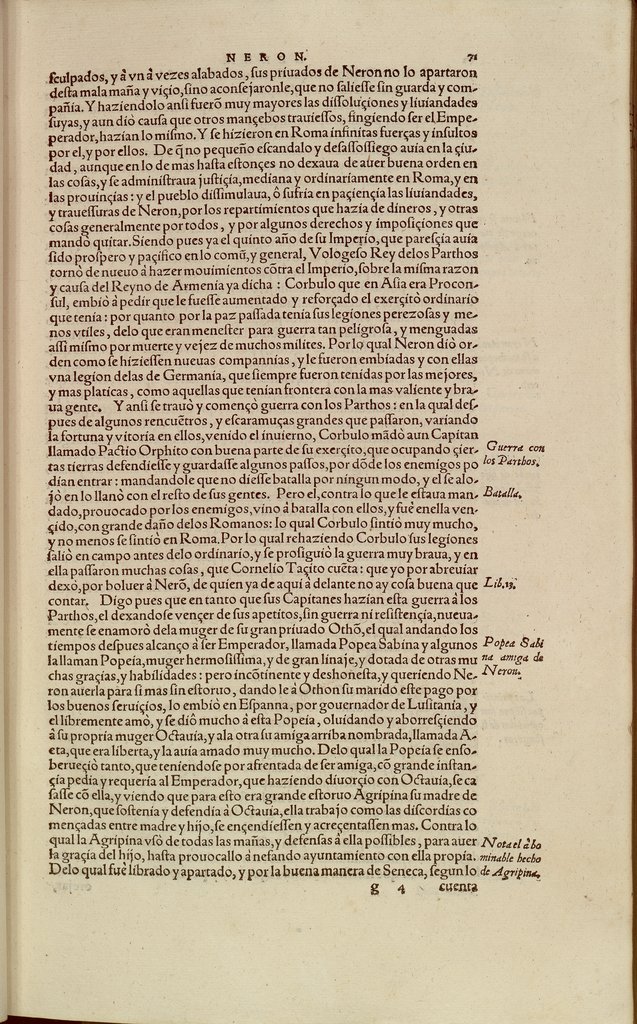 NERON. 71
ſculpados, y à vn à vezes alabados, ſus priuados de Neron no lo apartaron
deſta mala maña y viçio, ſino aconſejaronle, que no ſalieſſe ſin guarda y com-
pañia. Y haziendolo anſi fuerõ muy mayores las diſſoluçiones y liuiandades
ſuyas, y aun diò cauſa que otros mançebos trauieſſos, fingiendo ſer el Empe-
perador, hazian lo miſmo. Y ſe hizieron en Roma infinitas fuerças y inſultos
por el, y por ellos. De q̃ no pequeño eſcandalo y deſaſſoſſiego auia en la çiu-
dad, aunque en lo de mas haſta eſtonçes no dexaua de auer buena orden en
las coſas, y ſe adminiſtraua juſtiçia, mediana y ordinariamente en Roma, y en
las prouinçias: y el pueblo diſſimulaua, ò ſufria en paçiençia las liuiandades,
y traueſſuras de Neron, por los repartimientos que hazia de dineros, y otras
coſas generalmente por todos, y por algunos derechos y impoſiçiones que
mandò quitar. Siendo pues ya el quinto año de ſu Imperio, que pareſçia auia
ſido proſpero y paçifico en lo comũ, y general, Vologeſo Rey delos Parthos
tornò de nueuo à hazer mouimientos cõtra el Imperio, ſobre la miſma razon
y cauſa del Reyno de Armenia ya dicha: Corbulo que en Aſia era Procon-
ſul, embiò à pedir que le fueſſe aumentado y reforçado el exerçito ordinario
que tenia: por quanto por la paz paſſada tenia ſus legiones perezoſas y me-
nos vtiles, delo que eran meneſter para guerra tan peligroſa, y menguadas
aſſi miſmo por muerte y vejez de muchos milites. Por lo qual Neron diò or-
den como ſe hizieſſen nueuas compannias, y le fueron embiadas y con ellas
vna legion delas de Germania, que ſiempre fueron tenidas por las mejores,
y mas platicas, como aquellas que tenian frontera con la mas valiente y bra-
ua gente. Y anſi ſe trauò y començò guerra con los Parthos: en la qual deſ-
pues de algunos rencuẽtros, y eſcaramuças grandes que paſſaron, variando
la fortuna y vitoria en ellos, venido el inuierno, Corbulo mãdò aun Capitan
llamado Pactio Orphito con buena parte de ſu exerçito, que ocupando çier-
tas tierras defendieſſe y guardaſſe algunos paſſos, por dõde los enemigos po
dian entrar: mandandole que no dieſſe batalla por ningun modo, y el ſe alo-
jò en lo llanò con el reſto de ſus gentes. Pero el, contra lo que le eſtaua man-
dado, prouocado por los enemigos, vino à batalla con ellos, y fuè enella ven-
çido, con grande daño delos Romanos: lo qual Corbulo ſintiò muy mucho,
y no menos ſe ſintiò en Roma. Por lo qual rehaziendo Corbulo ſus legiones
ſaliò en campo antes delo ordinario, y ſe proſiguiò la guerra muy braua, y en
ella paſſaron muchas coſas, que Cornelio Taçito cuẽta: que yo por abreuiar
dexò, por boluer à Nerõ, de quien ya de aqui à delante no ay coſa buena que
contar. Digo pues que en tanto que ſus Capitanes hazian eſta guerra à los
Parthos, el dexandoſe vençer de ſus apetitos, ſin guerra ni reſiſtençia, nueua-
mente ſe enamorò dela muger de ſu gran priuado Othõ, el qual andando los
tiempos deſpues alcançò à ſer Emperador, llamada Popea Sabina y algunos
la llaman Popeia, muger hermoſiſſima, y de gran linaje, y dotada de otras mu
chas graçias, y habilidades: pero incõtinente y deshoneſta, y queriendo Ne-
ron auerla para ſi mas ſin eſtoruo, dando le à Othon ſu marido eſte pago por
los buenos ſeruiçios, lo embiò en Eſpanna, por gouernador de Luſitania, y
el libremente amò, y ſe diò mucho à eſta Popeia, oluidando y aborreſçiendo
à ſu propria muger Octauia, y ala otra ſu amiga arriba nombrada, llamada A-
cta, que era liberta, y la auia amado muy mucho. Delo qual la Popeia ſe enſo-
berueçiò tanto, que teniendoſe por afrentada de ſer amiga, cõ grande inſtan-
çia pedia y requeria al Emperador, que haziendo diuorçio con Octauia, ſe ca
ſaſſe cõ ella, y viendo que para eſto era grande eſtoruo Agripina ſu madre de
Neron, que ſoſtenia y defendia à Octauia, ella trabajo como las diſcordias co
mençadas entre madre y hijo, ſe ençendieſſen y acreçentaſſen mas. Contra lo
qual la Agripina vsò de todas las mañas, y defenſas à ella poſſibles, para auer
la graçia del hijo, haſta prouocallo à nefando ayuntamiento con ella propia.
Delo qual fuè librado y apartado, y por la buena manera de Seneca, ſegun lo
g 4 cuenta
Guerra con
los Parthos.
Batalla.
Lib. 13.
Popea Sabi
na amiga de
Neron.
Nota el abo
minable hecho
de Agripina.